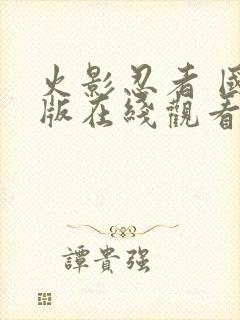 火影忍者 國
版在綫觀看
譚貴强